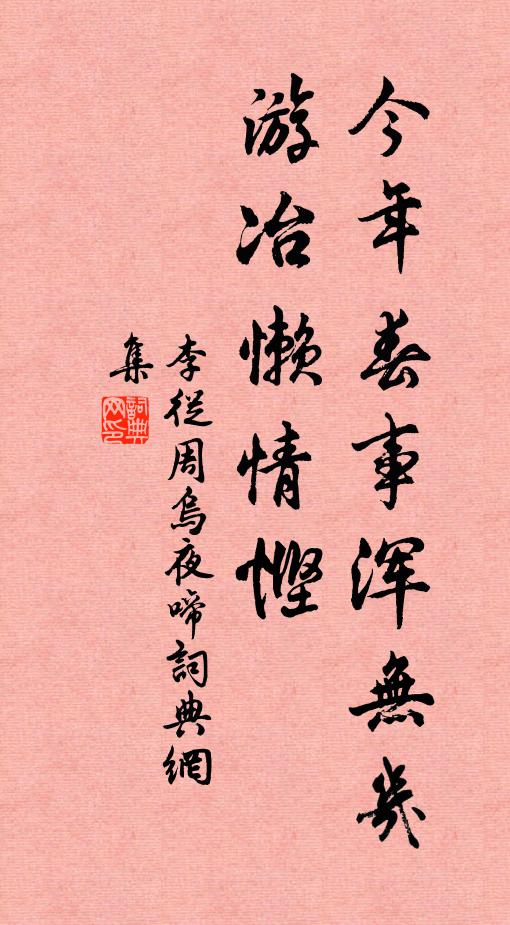 今年春事浑無幾
游冶懒情悭
李從周烏夜啼詞典網
集
詞典
网印